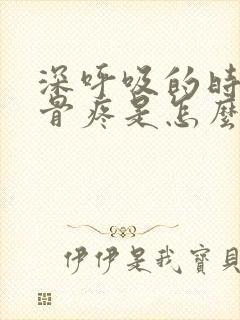 深呼吸的時
骨疼是怎麼
伊伊是我寶貝